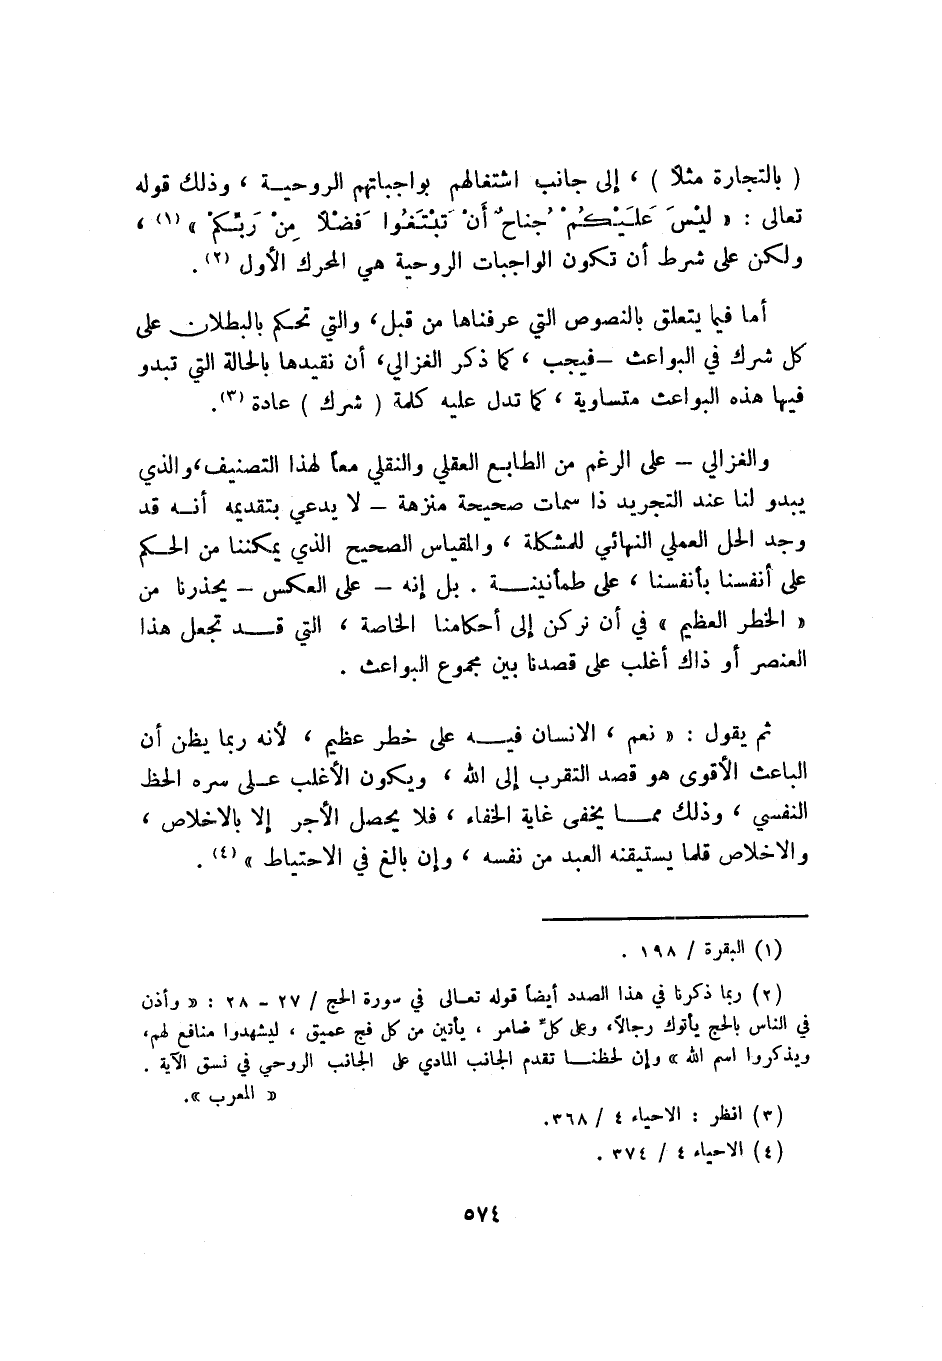 ( بالتجارة مثلاً ) ، إلى جانب اشتغالهم بواجباتهم الروحيـة ، وذلك قوله
تعالى : « لَيْسَ عَلَيْكُمْ جُناحٌ أَنْ تَبْتَغُوا فَضْلاً مِنْ رَبِّكُمْ » (١) ،
ولكن على شرط أن تكون الواجبات الروحية هي المحرك الأول (٢) .
أما فيما يتعلق بالنصوص التي عرفناها من قبل، والتي تحكم بالبطلان على
كل شرك في البواعث – فيجب ، كما ذكر الغزالي، أن نقيدها بالحالة التي تبدو
فيها هذه البواعث متساوية ، كما تدل عليه كلمة ( شرك ) عادة (٣).
والغزالي – على الرغم من الطابع العقلي والنقلي معاً لهذا التصنيف، والذي
يبدو لنا عند التجريد ذا سمات صحيحة منزهة – لا يدعي بتقديمه أنـه قد
وجد الحل العملي النهائي للمشكلة ، والمقياس الصحيح الذي يمكننا من الحـكم
على أنفسنا بأنفسنا ، على طمأنينـة . بل إنه – على العكس – يحذرنا من
« الخطر العظيم » في أن نركن إلى أحكامنا الخاصة ، التي قـد تجعل هذا
العنصر أو ذاك أغلب على قصدنا بين مجموع البواعث .
ثم يقول : « نعم ، الانسان فيـه على خطر عظيم ، لأنه ربما يظن أن
الباعث الأقوى هو قصد التقرب إلى الله ، ويكون الأغلب عـلى سره الحظ
النفسي ، وذلك ممـا يخفى غاية الخفاء ، فلا يحصل الأجر إلا بالاخلاص ،
والاخلاص قلما يستيقنه العبد من نفسه ، وإن بالغ في الاحتياط » (٤) .
(١) البقرة / ١٩٨ .
(٢) ربما ذكرنا في هذا الصدد أيضاً قوله تعـالى في سورة الحج / ٢٧ – ٢٨ : « وأذن
في الناس بالحج يأتوك رجالاً، وعلى كلِّ ضامر ، يأتين من كل فج عميق ، ليشهدوا منافع لهم،
ويذكروا اسم الله » وإن لحظنـا تقدم الجانب المادي على الجانب الروحي في نسق الآية .
« المعرب ».
(٣) انظر : الاحياء ٤ / ٣٦٨.
(٤) الاحياء ٤ / ٣٧٤ .
٥٧٤